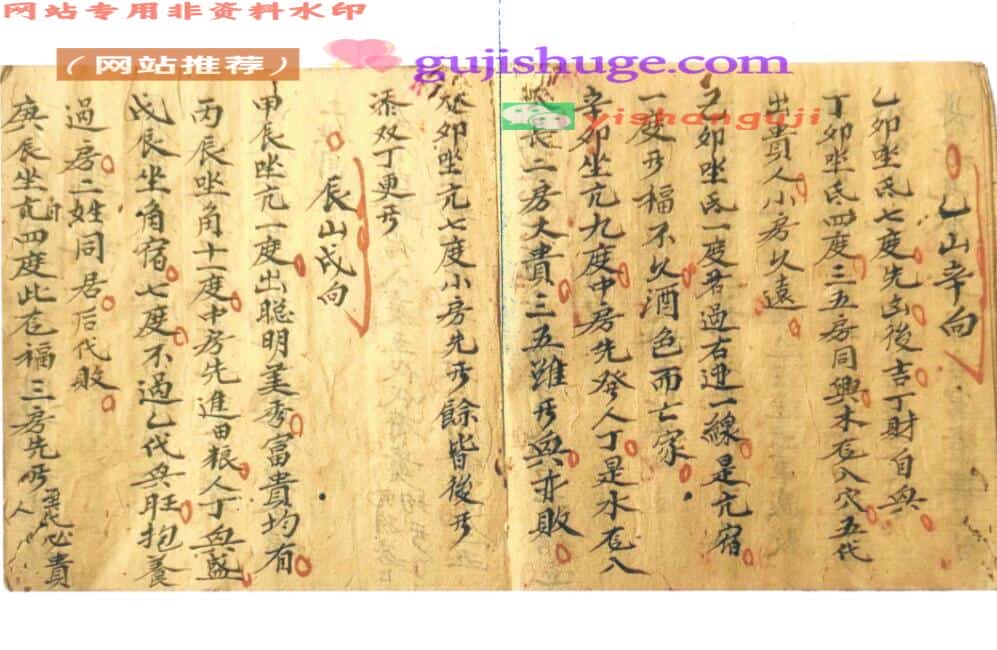 网站专用非资料水印
（网站推荐）
gujishuge.com
yishanguji
乙山辛向
乙卯坐氐七度先凶後吉丁財自興
丁卯坐氐四度三五房同興木石入穴五代
出貴人小房久遠
卯坐氐一度若过右边一線是亢宿
一度可福不久酒色而亡家
辛卯坐亢九度中居先發人丁是水石入
長二房大貴三五雖可興亦敗
癸卯坐亢七度小房先可餘皆後可
添双丁更可
辰山戌向
甲辰坐亢一度出聪明美秀富貴均有
丙辰坐角十一度中房先進田粮人丁興盛
戊辰坐角宿七度不過乙代興旺抱養
過房二姓同居后代敗
庚辰坐亢四度此穴福三房先可
人心貴